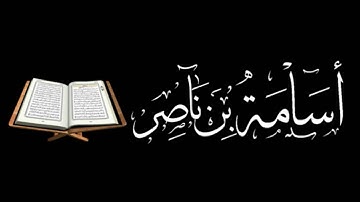 أُسَامَة بِن نَاصِر